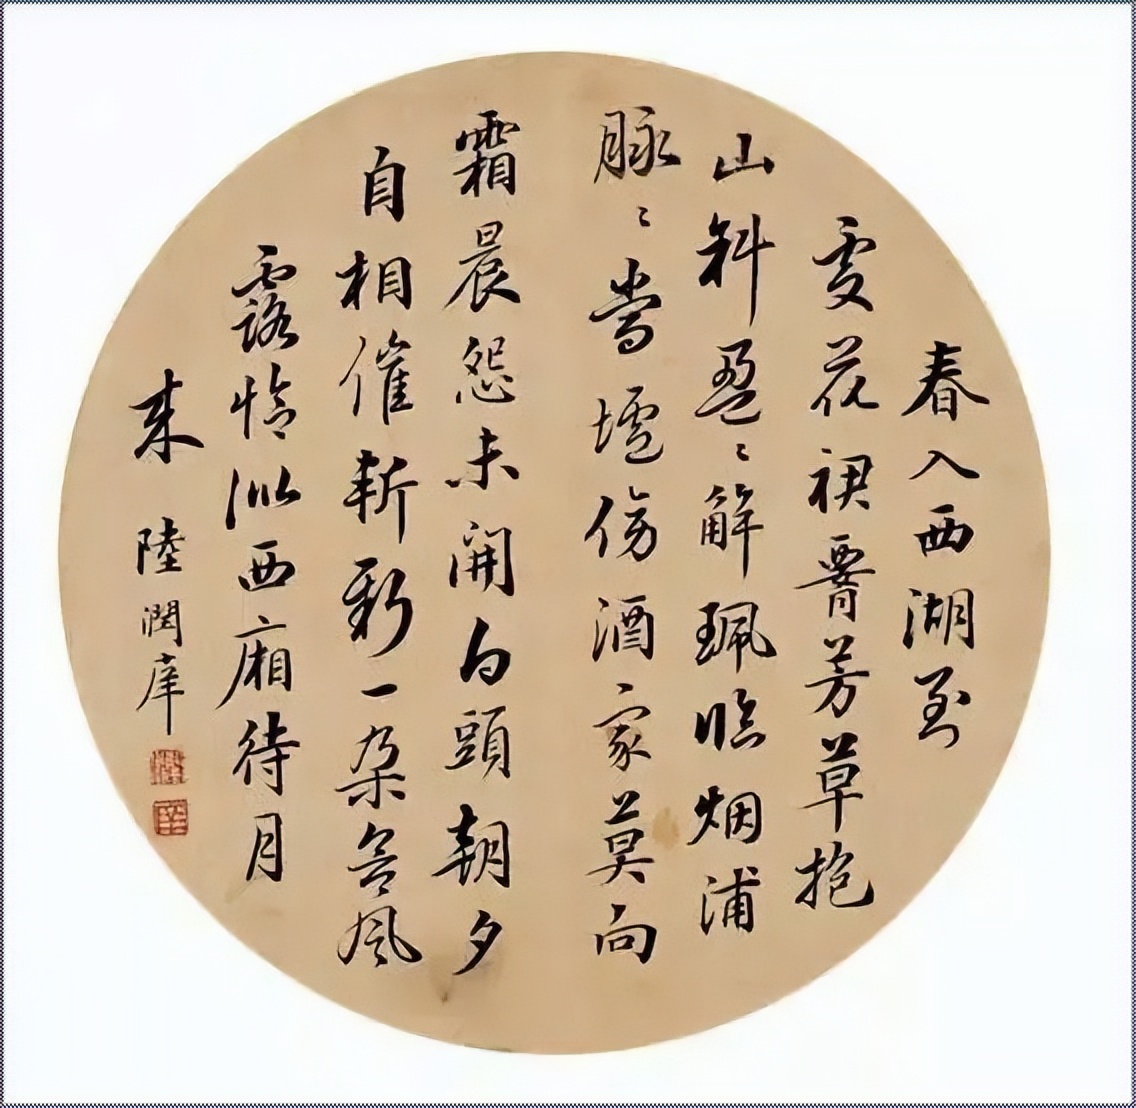 春入西湖到
處花裙腰芳草抱
山斜盈〻解珮臨烟浦
脉〻當壚傍酒家莫向
霜晨怨未開白頭朝夕
自相催斬新一朶含風
露恰似西廂待月
来 陸潤庠